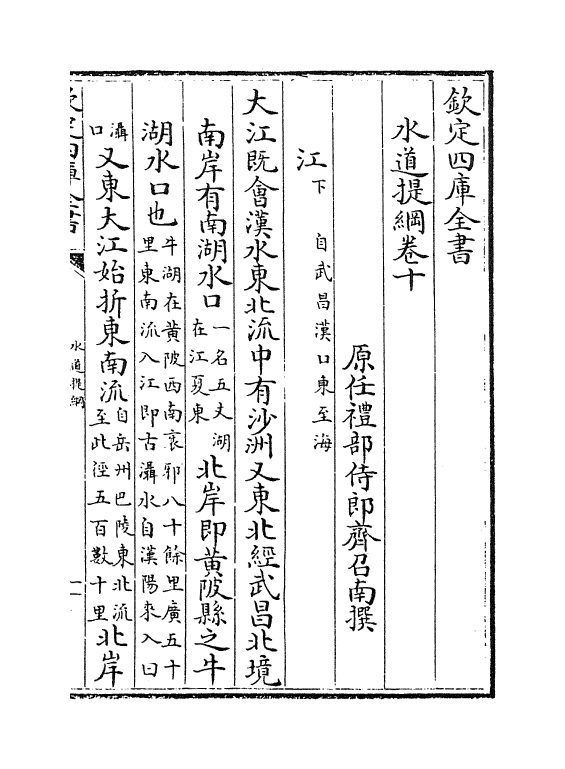 欽定四庫全書
水道提綱卷十
原任禮部侍郎齊召南撰
江下 自武昌漢口東至海
大江既會漢水東北流中有沙洲又東北經武昌北境
南岸有南湖水口一名五丈湖在江夏東北岸即黄陂縣之牛
湖水口也牛湖在黄陂西南袤邪八十餘里廣五十里東南流入江即古灄水自漢陽來入曰
灄口又東大江始折東南流自岳州巴陵東北流至此徑五百數十里北岸
欽定四庫全書
水道提綱
一